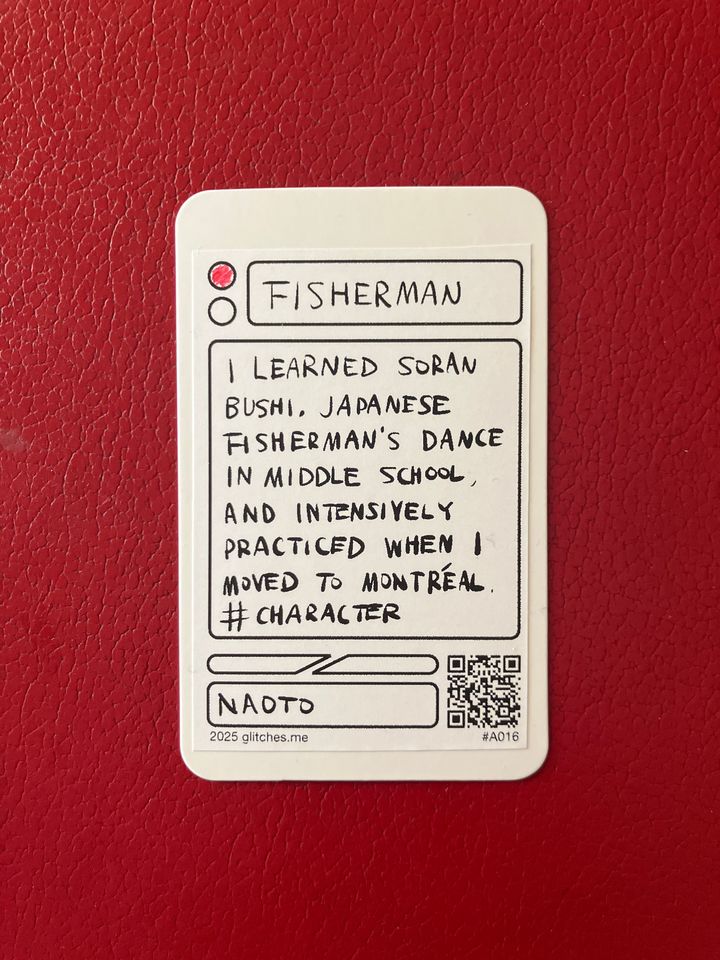 FISHERMAN
I LEARNED SORAN
BUSHI. JAPANESE
FISHERMAN'S DANCE
IN MIDDLE SCHOOL,
AND INTENSIVELY
PRACTICED WHEN I
MOVED TO MONTRÉAL.
#CHARACTER
NAOTO
2025 glitches.me
#A016